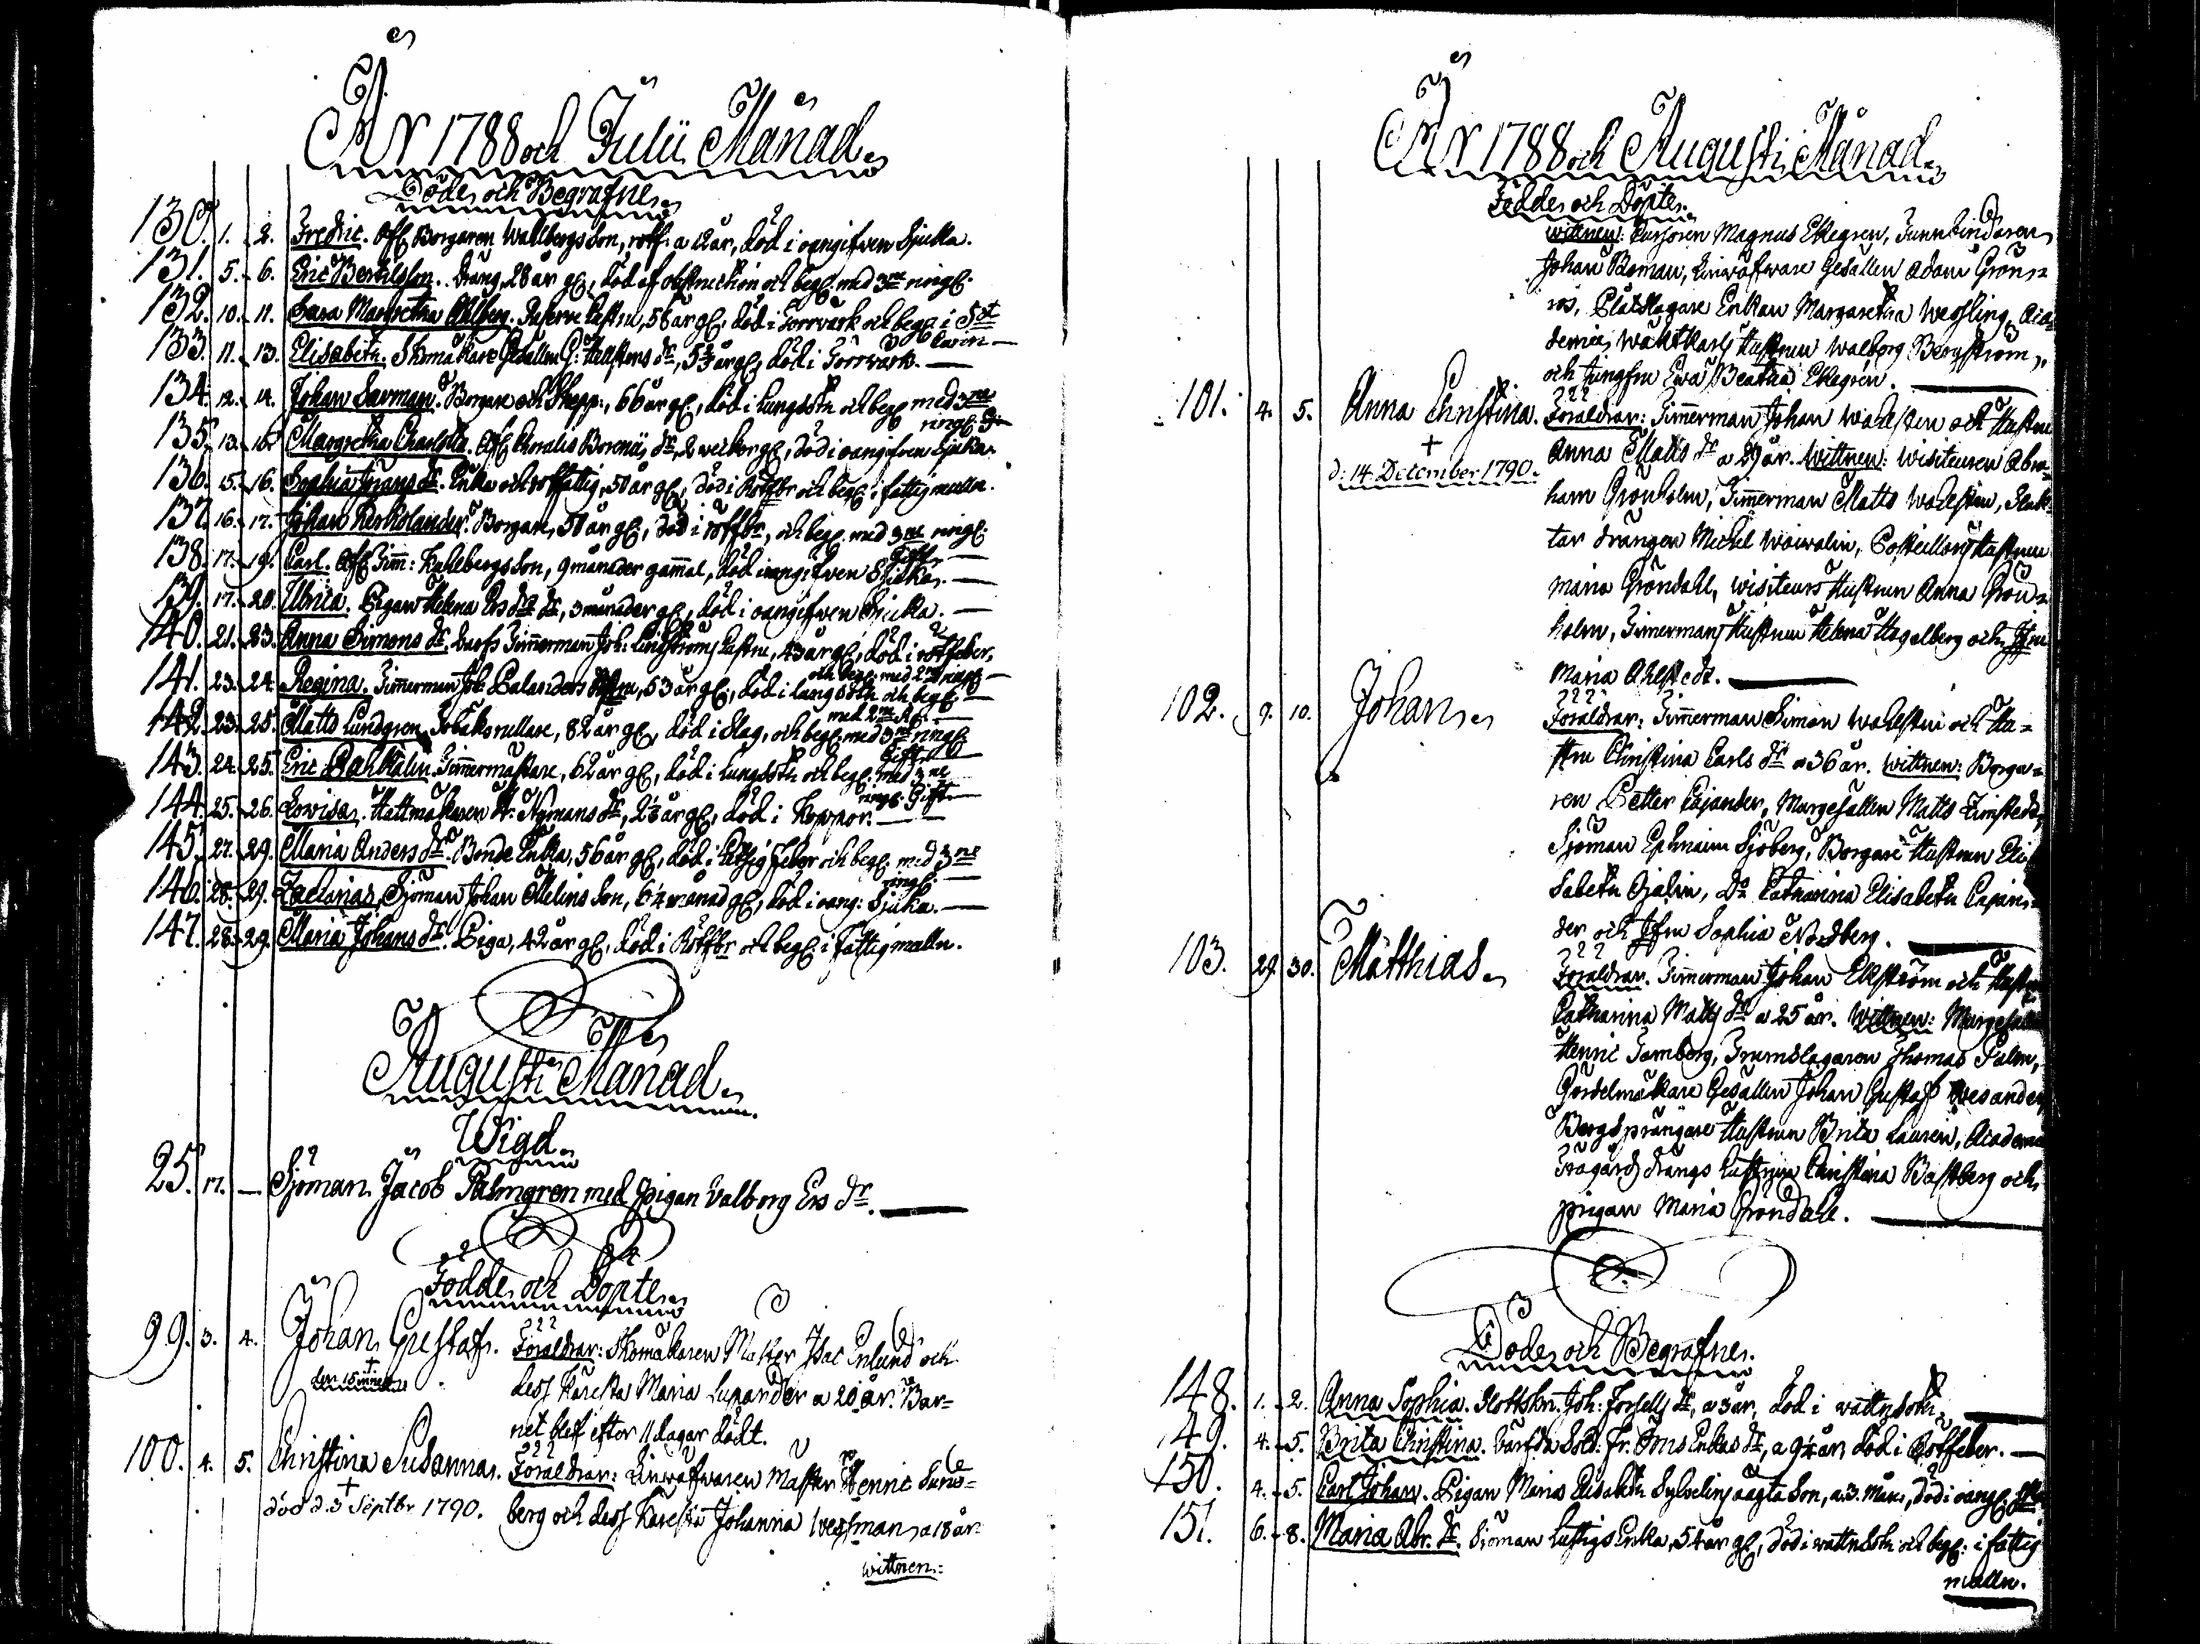 År 1788 och Julii Månad.
Döde och Begrafne.
130. 1. 2. Fredric. Afl. Borgaren Wahlbergs Son, a 12 år, död i oangifwen Sjuka.
131. 5. 6. Eric Bertilsson. Dräng, 28 år gl, död af obstruction och begr. med 3ne ringl.
132. 10. 11. Sara Margretha Ahlberg. Hustru, 56 år gl, död i Torrvärk och begr. i St
Carin
133. 11. 13. Elisabeth. Skomakare Gesällen G: Hellstens dr, år gl, död i Torrvärk.
134. 12. 14. Johan Sarman. Borgare och Skepp:, 66 år gl, död i Lungsotn och begr. med 3ne
ringl.
135. 13. 16. Margretha Charlotta. Afl. Choralis Borenii dr, 2 weckor gl, död i oangifven Sjuka.
136. 15. 16. Sophia Jörans dr. Enka och rotfattig, 50 år gl, död i Rötfbr och begr. i fattig mullen.
137. 16. 17. Johan Kerkolander. Borgare, 50 år gl, död i rötfbr, och begr. med 3ne ringl.
Gift.
138. 17. 19. Carl. Afl. Tim: Kahlbergs Son, 9 månader gammal, död i oangifwen Sjuka.
139. 17. 20. Ulrica. Pigan Helena Ers drs dr, 3 månader gl, död i oangifwen Sjuka.
140. 21. 23. Anna Simons dr. Warfs Timmerman Joh: Lindströms Hustru, 43 år gl, död i rötfeber,
och begr. med 2ne ringl.
141. 23. 24. Regina. Timmerman Joh: Palanders Hustru, 53 år gl, död i Lungsotn och begr.
med 2ne
142. 23. 25. Matts Lundgren. Tobaksrullare, 82 år gl, död i Slag, och begr. med 3ne ringl.
Gift.
143. 24. 25. Eric Dahlkalin. Timmermästare, 62 år gl, död i Lungsotn och begr. med 3ne
ringl. Gift.
144. 25. 26. Lovisa. Hattmakaren H: Nymans dr, år gl, död i Koppor.
145. 27. 29. Maria Anders dr. Bonde Enka, 56 år gl, död i Hitsig feber och begr. med 3ne
ringl.
146. 28. 29. Zacharias. Sjöman Johan Melins Son, 6 1/4 månad gl, död i oang: Sjuka.
147. 28. 29. Maria Johans dr. Piga, 42 år gl, död i Rötfbr och begr. i fattigmulln.
Augusti Månad.
Wigd.
25. 17. — Sjöman Jacob Palmgren med pigan Valborg Ers dr.
Födde och Döpte.
99. 3. 4. Johan Gustaf. Föräldrar: Skomakaren Mäster Isac Enlund och
den 15
dess Käresta Maria Lupander a 20 år. Bar=
net blef efter 11 dagar dödt.
100. 4. 5. Christina Susanna. Föräldrar: Linwäfwaren Mäster Henric Sund=
död d. 3 Septbr 1790. berg och dess Käresta Johanna Wessman a 18 år
wittnen:
År 1788 och Augusti Månad.
Födde och Döpte.
wittnen: Cursoren Magnus Ekegren, Tunnbindaren
Johan Boman, Linwäfware Gesällen Adam Grön=
ros, Plåtslagare Enkan Margaretha Wessling, Aca=
demiæ Wacktkarls Hustrun Walborg Bergström,
och Jungfru Ewa Beatha Ekegrén.
101. 4. 5. Anna Christina. Föräldrar: Timmerman Johan Wahlsten och Hustru
Anna Matts dr a 29 år. Wittnen: Wisiteuren Abra=
d: 14 December 1790.
ham Grönholm, Timmerman Matts Wahlsten, Slak=
tar drängen Michel Woiwalin, Postillons Hustrun
Maria Gröndahl, Wisiteurs Hustrun Anna Grön=
holm, Timmermans Hustrun Helena Hagelberg och Jfru
Maria Ahlstedt.
102. 9. 10. Johan. Föräldrar: Timmerman Simon Wahlsten och Hu=
stru Christina Carls dr a 36 år. wittnen: Borga=
ren Petter Cajander, Murgesällen Matts Limstedt,
Sjöman Ephraim Sjöberg, Borgare Hustrun Eli
sabeth Ojalin, Do Catharina Elisabeth Cajan=
der och Jfru Sophia Nordberg.
103. 29. 30. Matthias. Föräldrar: Timmerman Johan Ekström och Hustru
Catharina Matts dr a 25 år. Wittnen: Murgesällen
Henric Tamberg, Trumslagaren Thomas Palm,
Gördelmakare Gesällen Johan Gustaf Wesander,
Bergsprängare Hustrun Brita Lauren, Academiæ
Trägårds drängs hustrun Christina Bastberg och
pigan Maria Gröndahl.
Döde och Begrafne.
148. 1. 2. Anna Sophia. Slottskn. Joh: Forsells dr, a 3 år, död i wattusotn.
149. 4. 5. Brita Christina. Enkas dr, a 9 1/4 år, död i Rötfeber.
150. 4. 5. Carl Johan. Pigan Maria Elisabeth Sylvelins oägta Son, a. 3. Mån., död i oangl.
151. 6. 8. Maria Abr. dr. Sjöman Luftigs Enka, 54 år gl, död i wattusotn och begr: i fattig
mulln.